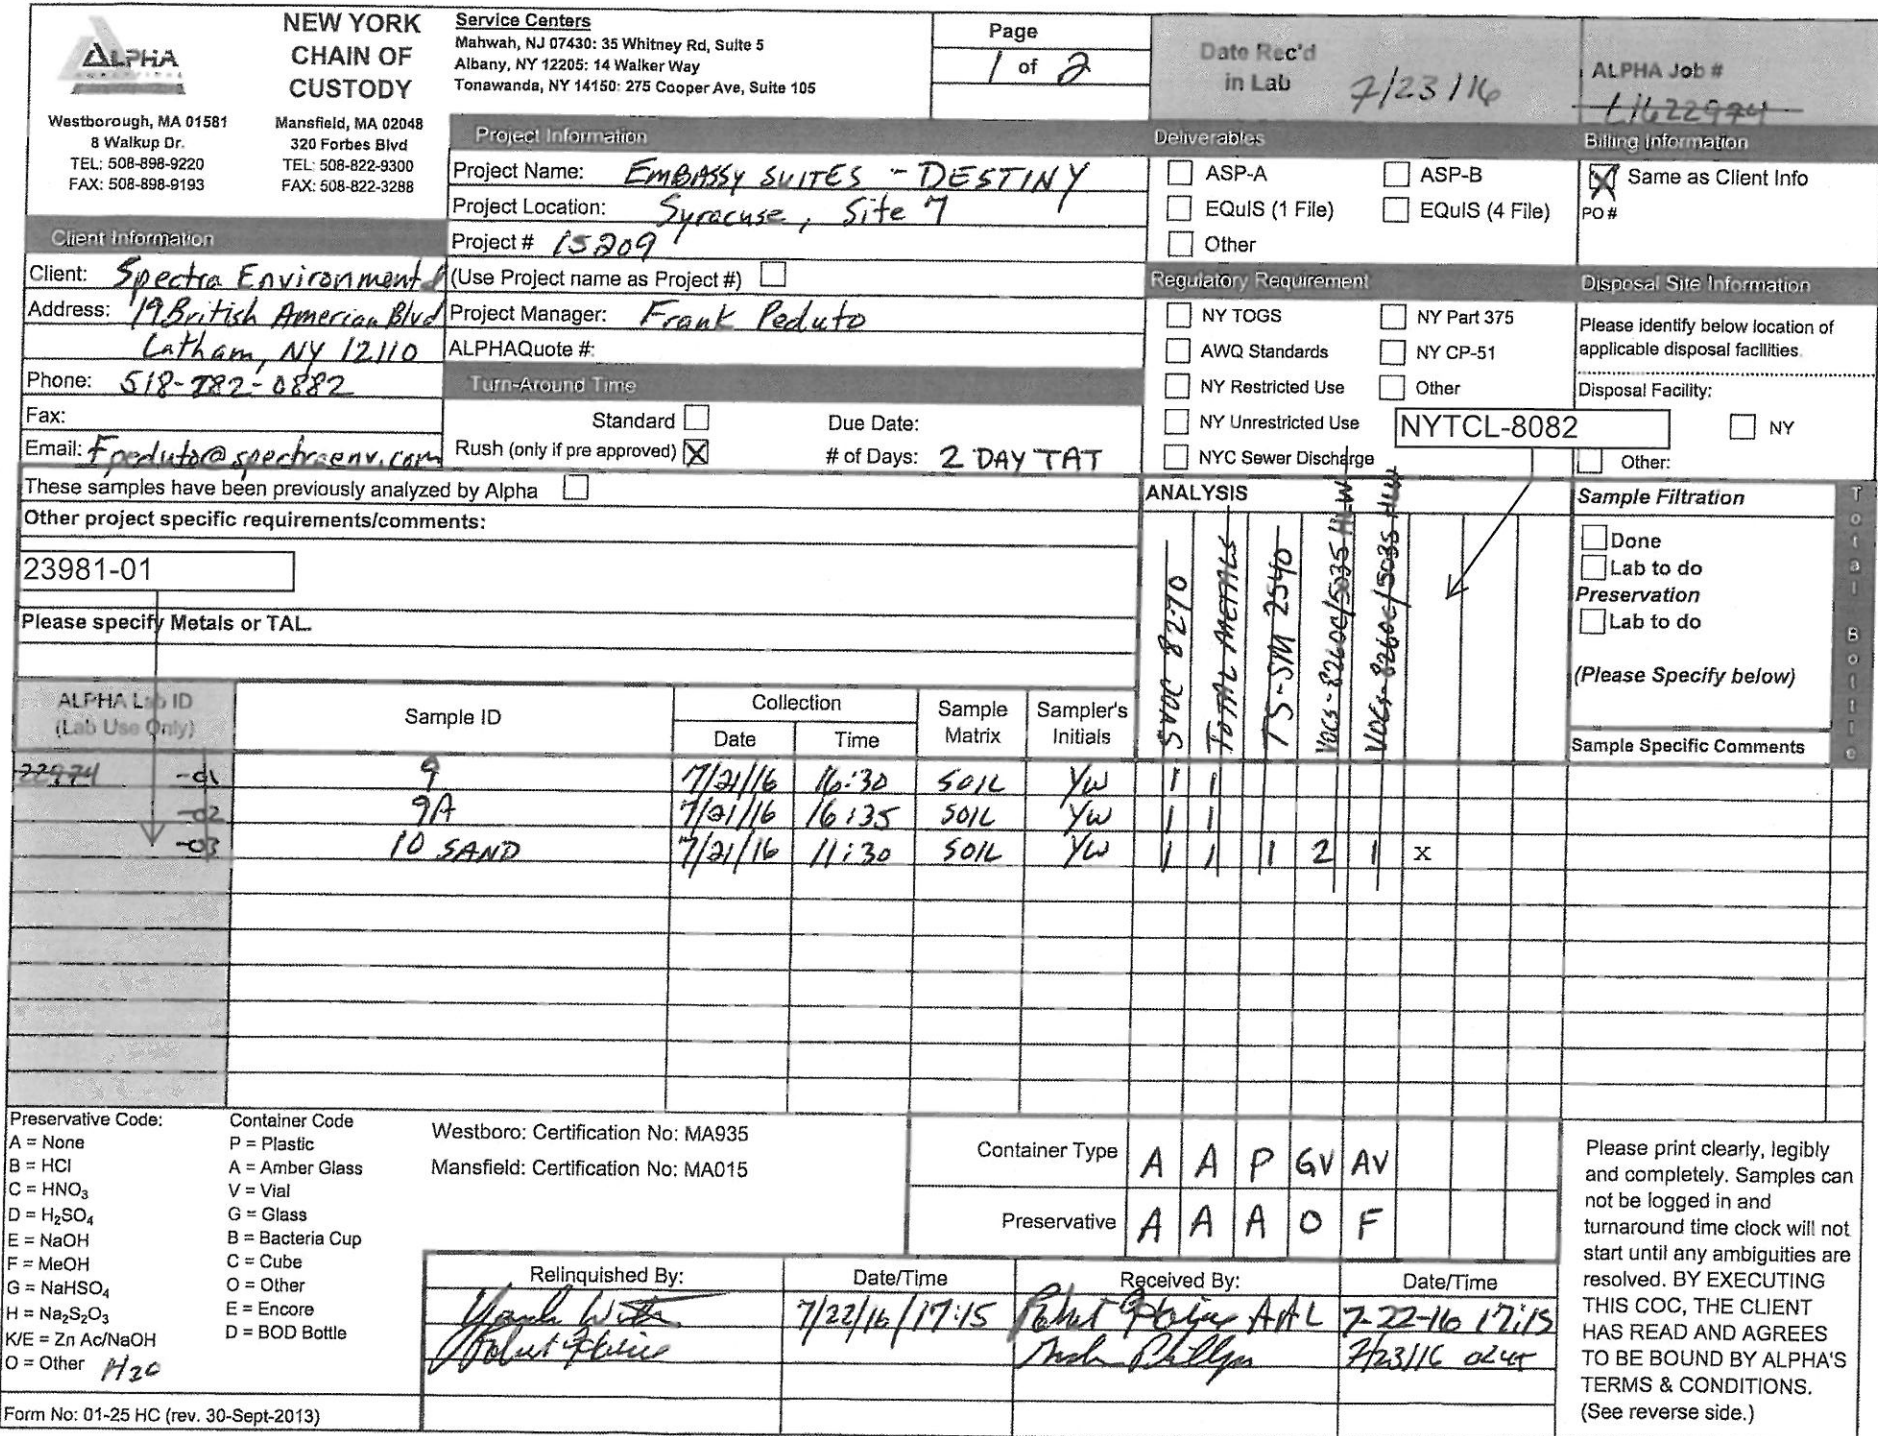 ALPHA
NEW YORK
CHAIN OF
CUSTODY
Westborough, MA 01581
8 Walkup Dr.
TEL: 508-898-9220
FAX: 508-898-9193
Mansfield, MA 02048
320 Forbes Blvd
TEL: 508-822-9300
FAX: 508-822-3288
Service Centers
Mahwah, NJ 07430: 35 Whitney Rd, Suite 5
Albany, NY 12205: 14 Walker Way
Tonawanda, NY 14150: 275 Cooper Ave, Suite 105
Page
1 of 2
Date Rec'd
in Lab 7/23/16
ALPHA Job #
L1622974
Client Information
Client: Spectra Environmental
Address: 19 British American Blvd
Latham, NY 12110
Phone: 518-782-0882
Fax:
Email: Fpeduto@spectraenv.com
Project Information
Project Name: EMBASSY SUITES - DESTINY
Project Location: Syracuse, Site 7
Project # 15209
(Use Project name as Project #)
Project Manager: Frank Peduto
ALPHAQuote #:
Turn-Around Time
Standard
Due Date:
Rush (only if pre approved) X
# of Days: 2 DAY TAT
Deliverables
ASP-A ASP-B
EQuIS (1 File) EQuIS (4 File)
Other
Billing Information
X Same as Client Info
PO #
Regulatory Requirement
NY TOGS NY Part 375
AWQ Standards NY CP-51
NY Restricted Use Other
NY Unrestricted Use
NYC Sewer Discharge
NYTCL-8082
Disposal Site Information
Please identify below location of
applicable disposal facilities.
Disposal Facility:
NY
Other:
These samples have been previously analyzed by Alpha
Other project specific requirements/comments:
23981-01
Please specify Metals or TAL.
ANALYSIS
SVOC 8270
TOTAL METALS
TS-SM 2540
VOCs-8260C/5035 HLW
VOCs-8260C/5035 HLW
Sample Filtration
Done
Lab to do
Preservation
Lab to do
(Please Specify below)
Total Bottle
ALPHA Lab ID
(Lab Use Only)
Sample ID
Collection
Date Time
Sample
Matrix
Sampler's
Initials
Sample Specific Comments
22974 -01 9 7/21/16 16:30 SOIL YW 1 1
-02 9A 7/21/16 16:35 SOIL YW 1 1
-03 10 SAND 7/21/16 11:30 SOIL YW 1 1 1 2 1 x
Preservative Code:
A = None
B = HCl
C = HNO3
D = H2SO4
E = NaOH
F = MeOH
G = NaHSO4
H = Na2S2O3
K/E = Zn Ac/NaOH
O = Other H2O
Container Code
P = Plastic
A = Amber Glass
V = Vial
G = Glass
B = Bacteria Cup
C = Cube
O = Other
E = Encore
D = BOD Bottle
Westboro: Certification No: MA935
Mansfield: Certification No: MA015
Container Type A A P GV AV
Preservative A A A O F
Relinquished By: Date/Time Received By: Date/Time
7/22/16/17:15 AAL 7-22-16 17:15
7/23/16
Please print clearly, legibly
and completely. Samples can
not be logged in and
turnaround time clock will not
start until any ambiguities are
resolved. BY EXECUTING
THIS COC, THE CLIENT
HAS READ AND AGREES
TO BE BOUND BY ALPHA'S
TERMS & CONDITIONS.
(See reverse side.)
Form No: 01-25 HC (rev. 30-Sept-2013)